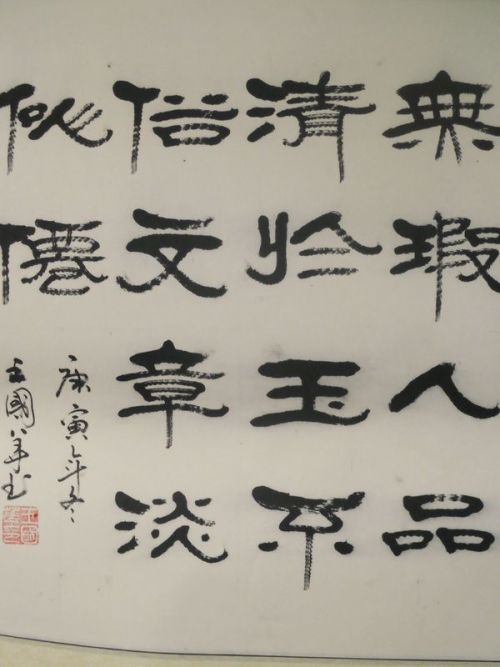 無瑕人品
清於玉不
俗文章淡
似僊
庚寅年冬
王國书